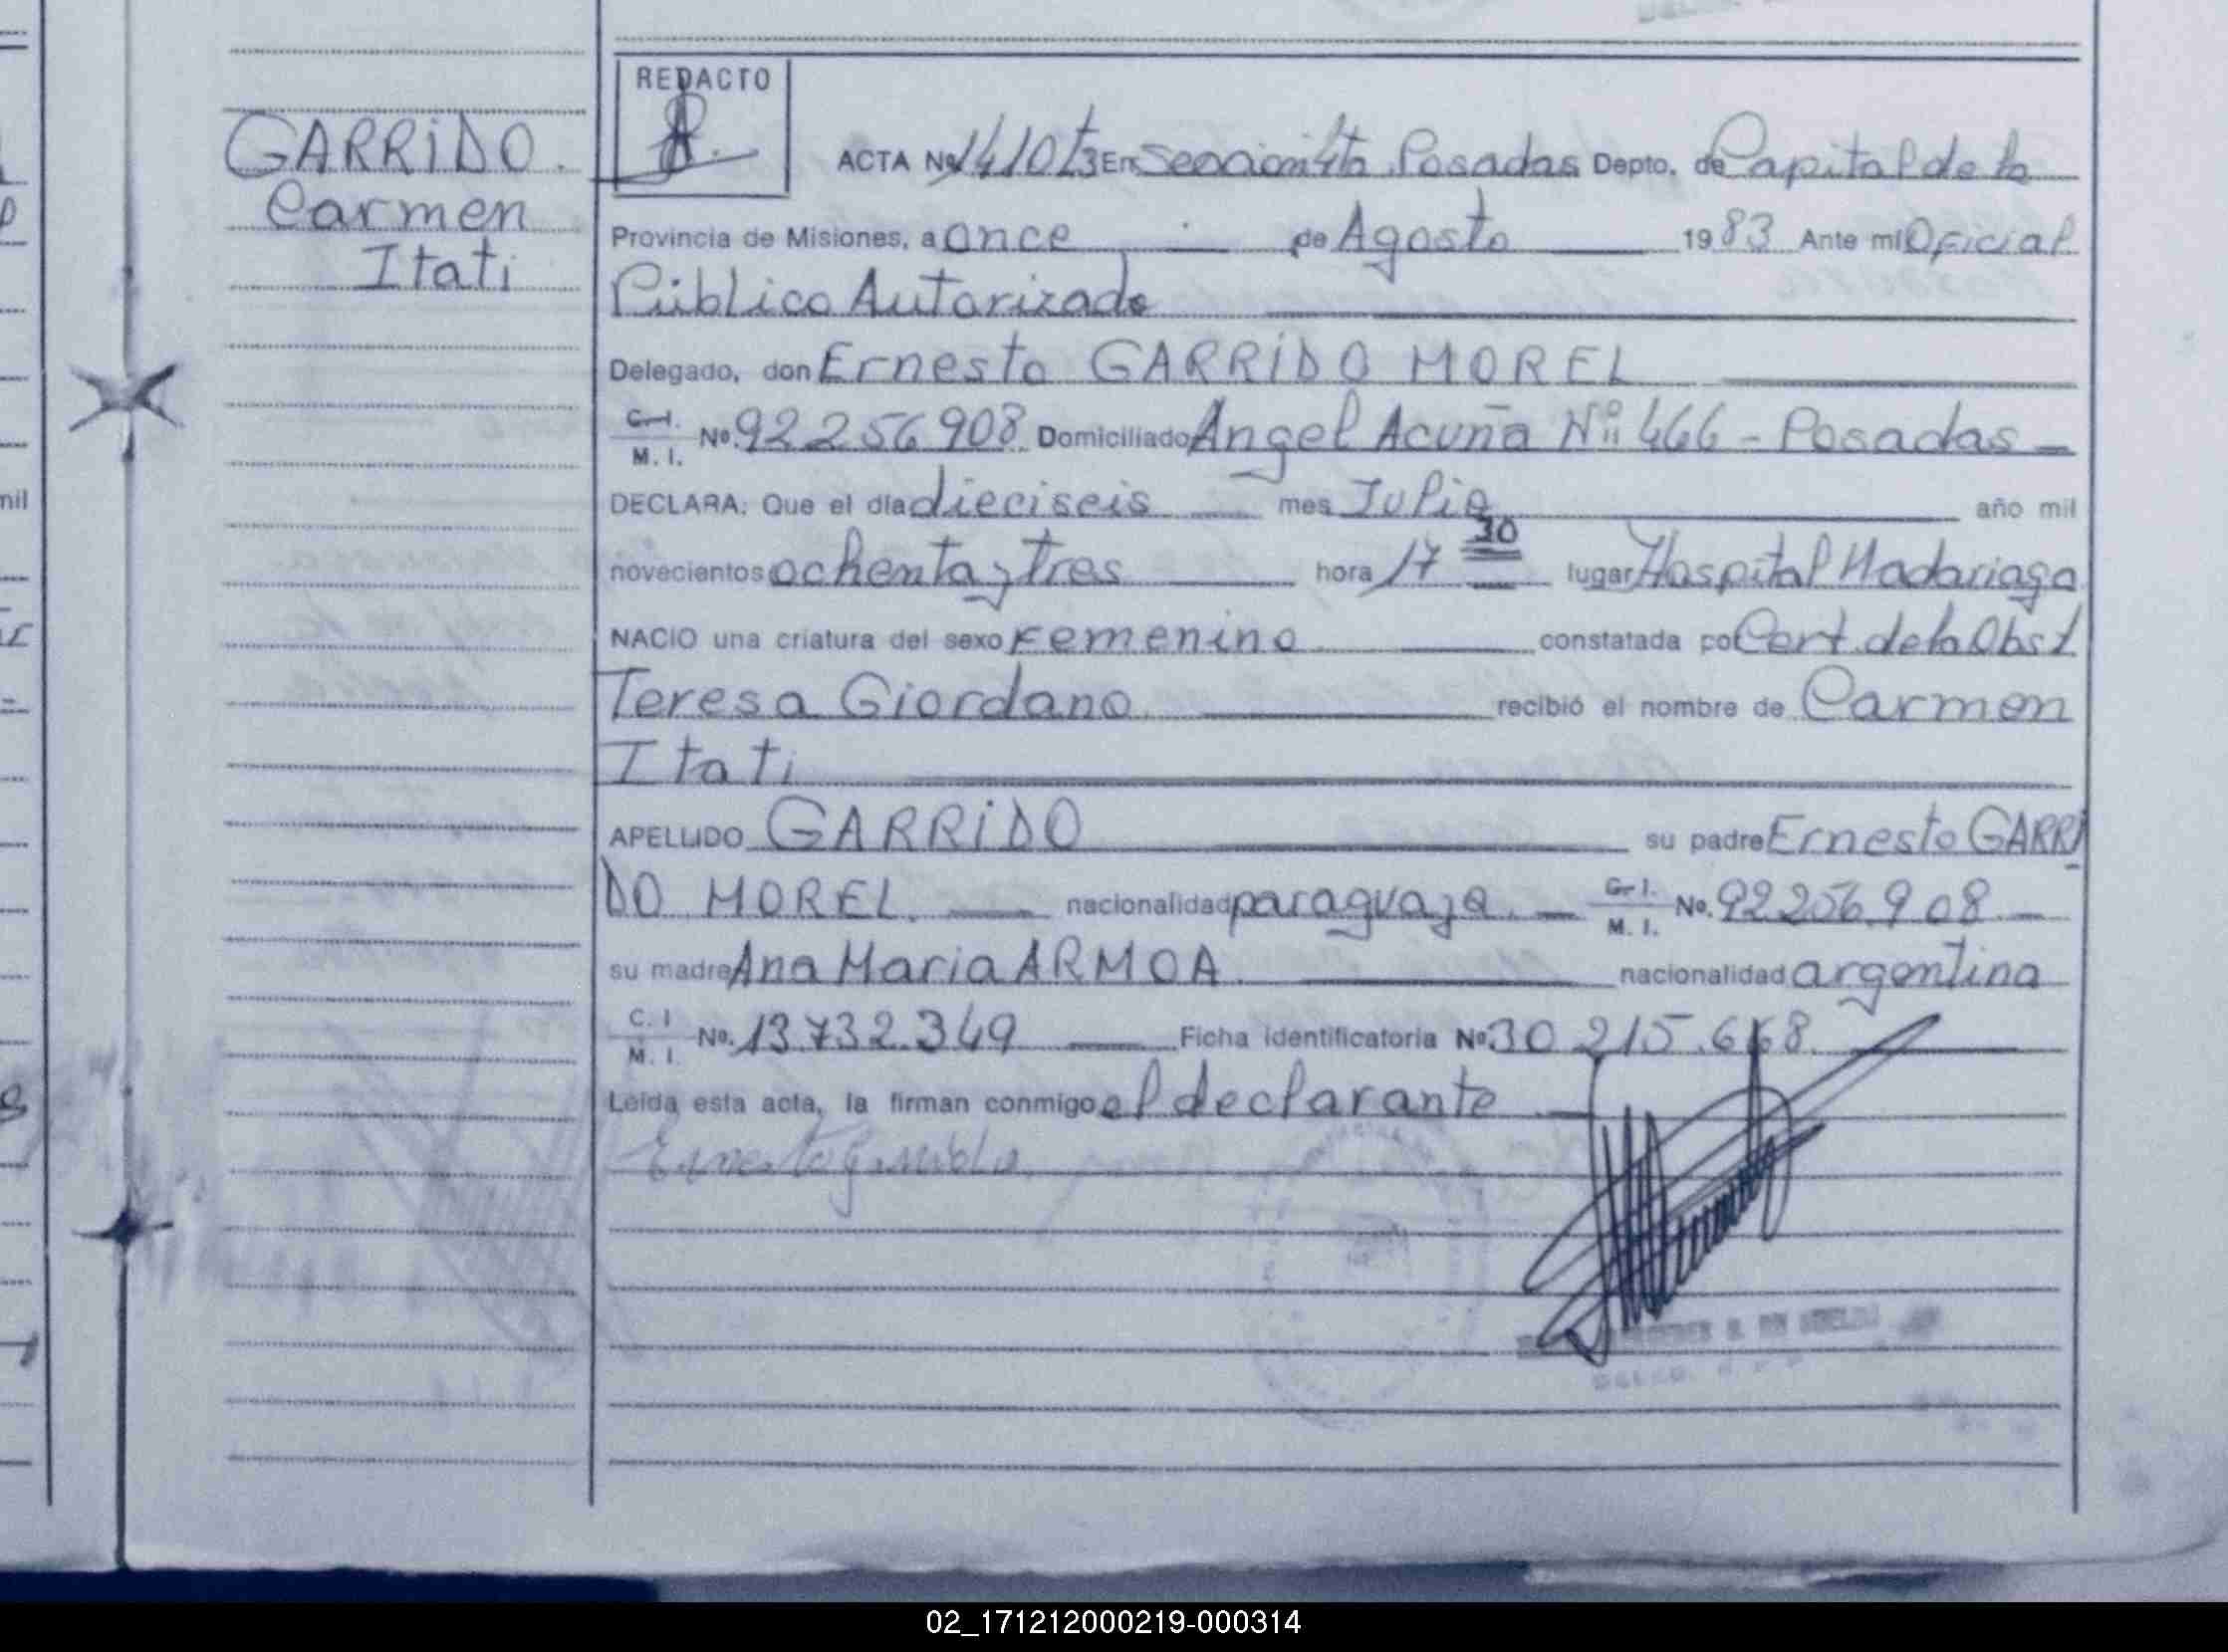 GARRIDO.
Carmen
Itati
REDACTO
ACTA Nº 1410 t3 En sección 4ta Posadas Depto. de Capital de la
Provincia de Misiones, a once de Agosto 1983 Ante mi Oficial
Público Autorizado
Delegado, don Ernesto GARRIDO MOREL
C.I.
M. I. Nº. 92256908 Domiciliado Angel Acuña Nº 466 - Posadas -
DECLARA: Que el día dieciseis mes Julio año mil
novecientos ochenta y tres hora 17 30 lugar Hospital Madariaga
NACIO una criatura del sexo Femenino constatada por Cert. de la Obst
Teresa Giordano recibió el nombre de Carmen
Itati
APELLIDO GARRIDO su padre Ernesto GARRI
DO MOREL. nacionalidad paraguaya. C.I.
M. I. Nº. 92256.908
su madre Ana Maria ARMOA. nacionalidad argentina
C. I
M. I. Nº. 13.732.349 Ficha identificatoria Nº 30 215.668.
Leída esta acta, la firman conmigo el declarante
Ernesto Garrido
mil
02_171212000219-000314